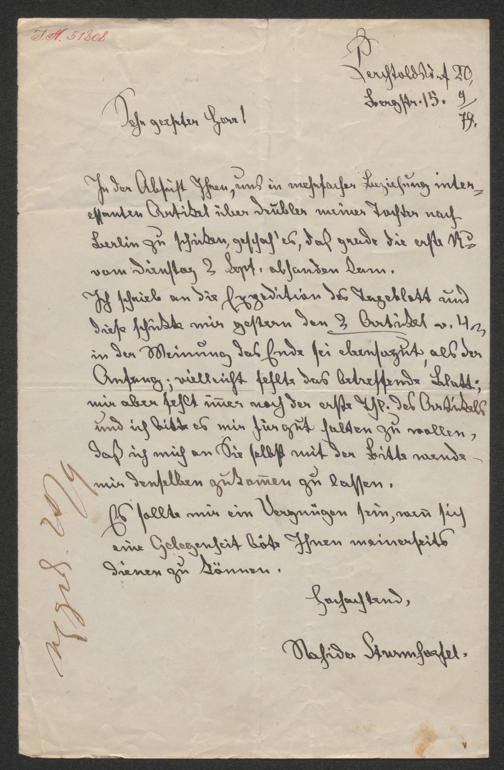 I.N. 51808
Perchtoldsd. 20
Bergstr. 15. 9/
79.
Sehr geehrter Herr!
In der Absicht Ihren, uns in mehrfacher Beziehung inter-
essanten Artikel über meiner Tochter nach
Berlin zu schicken, geschah's, daß grade die erste Nr
vom Dienstag 2 Sept. abhanden kam.
Ich schrieb an die Expedition des Tageblatt und
diese schickte mir gestern den 2 Artikel v. 4
in der Meinung das Ende sei ebensogut, als der
Anfang; vielleicht fehlte das betreffende Blatt;
mir aber fehlt im̄er noch der erste Thl. des Artikels
und ich bitte es mir für gut halten zu wollen,
daß ich mich an Sie selbst mit der Bitte wende
mir denselben zukom̄en zu lassen.
Es sollte mir ein Vergnügen sein, wen̄ sich
eine Gelegenheit böte Ihnen meinerseits
dienen zu können.
Hochachtend,
Nahida Sturmhoefel.
20/9